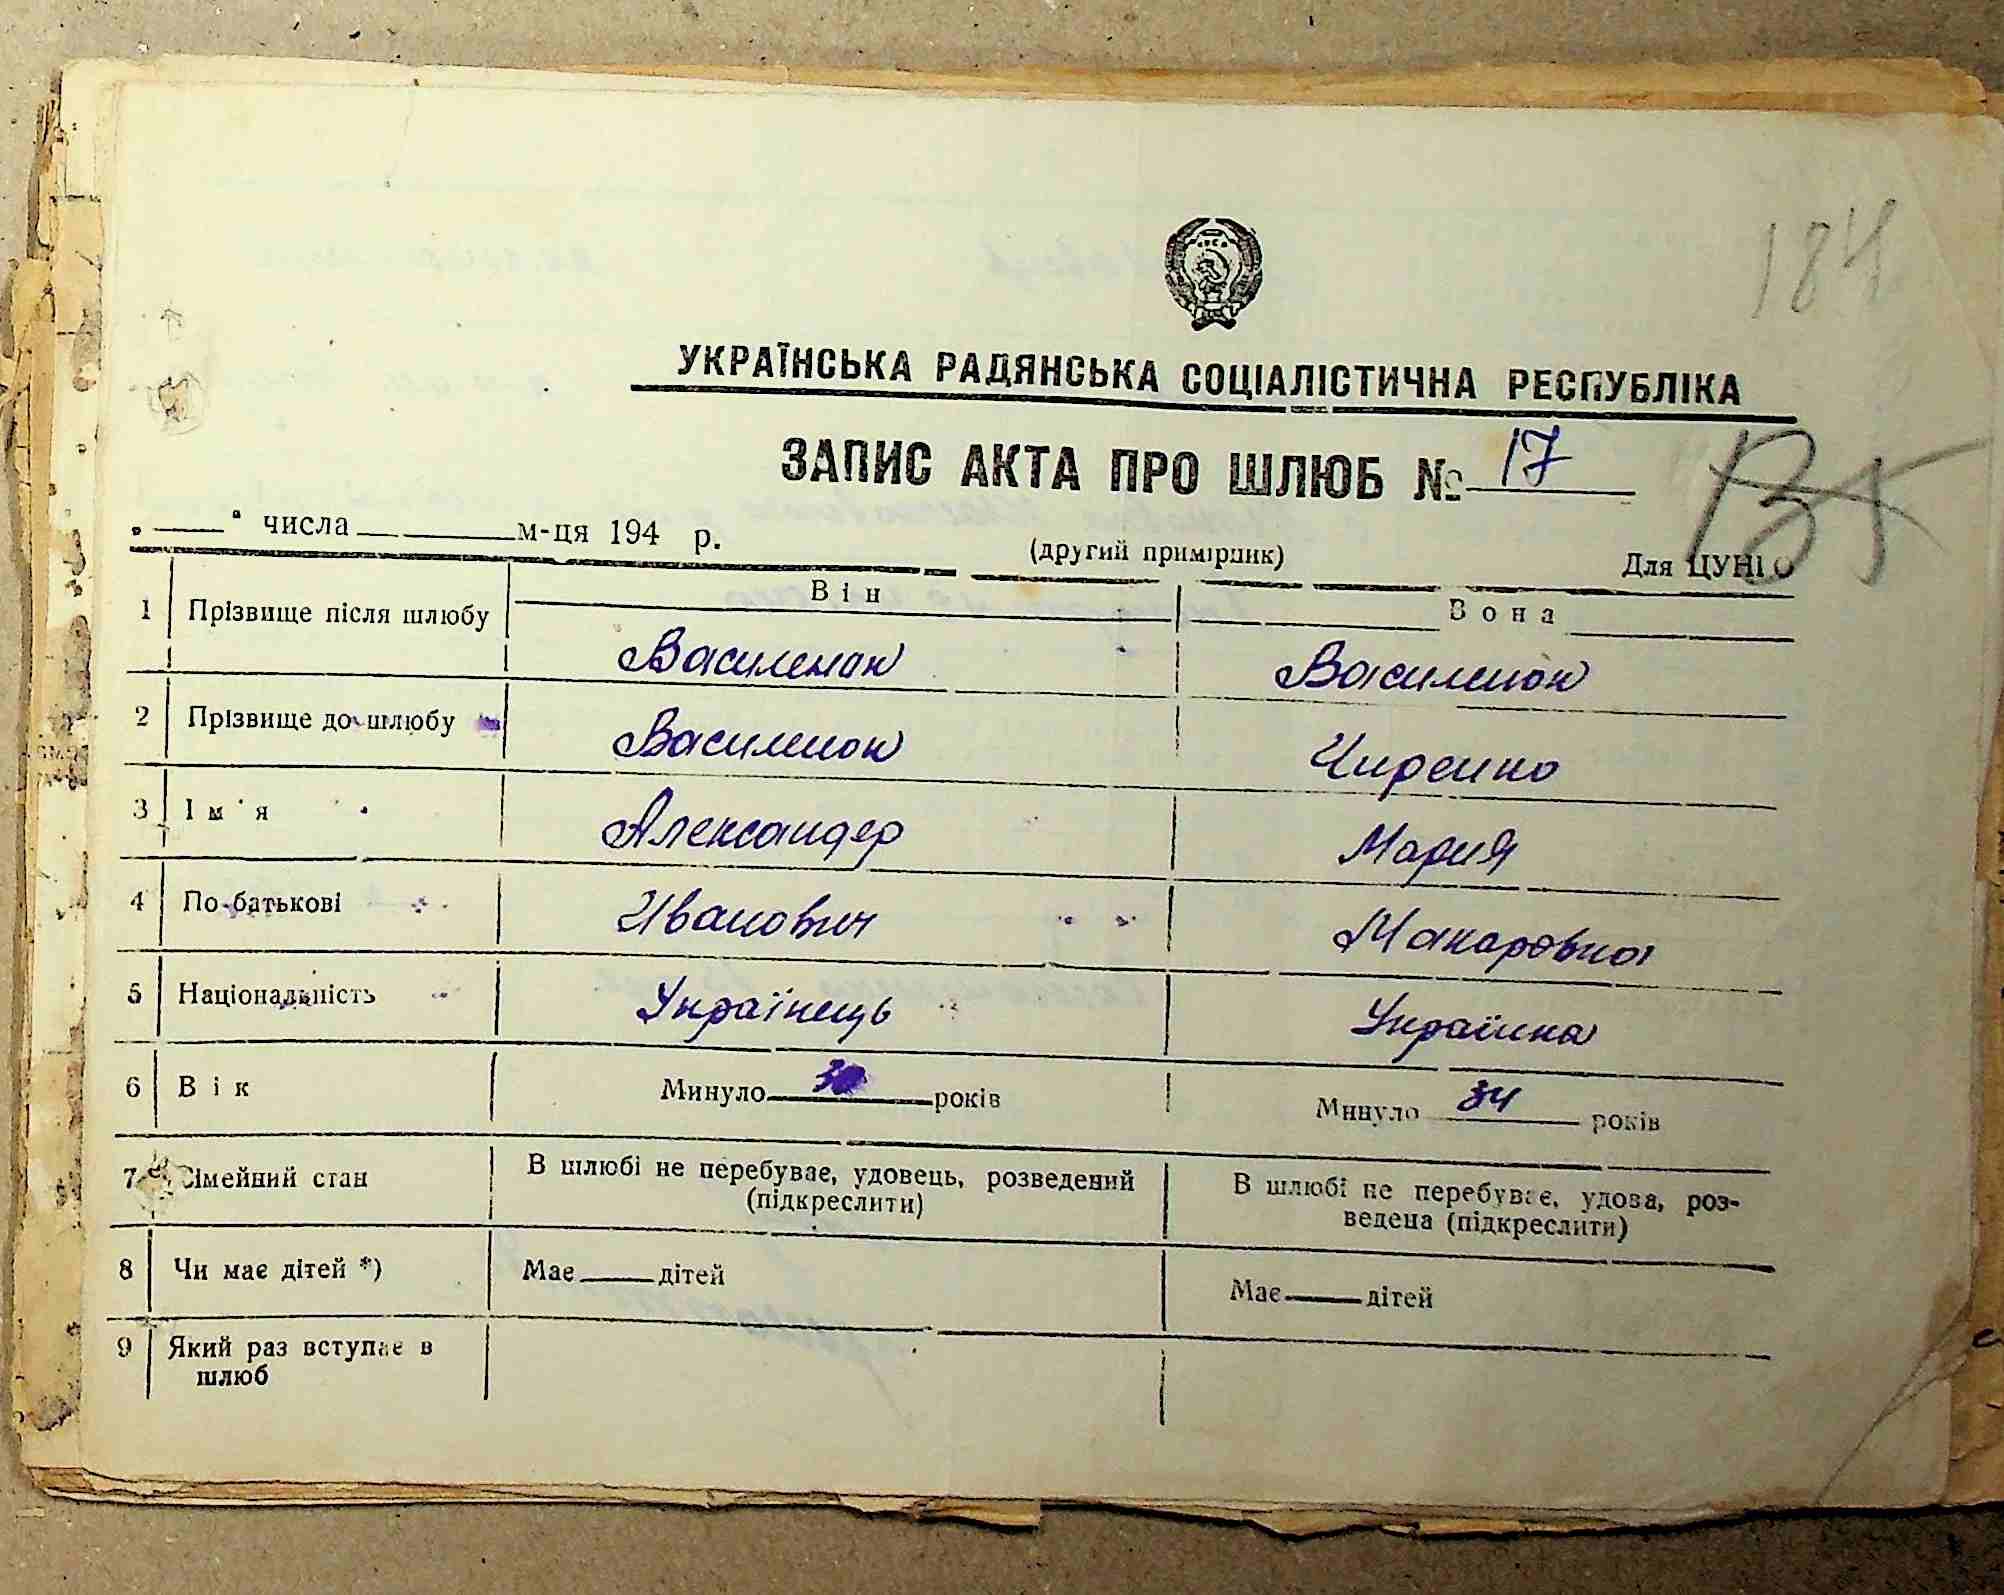 184
УКРАЇНСЬКА РАДЯНСЬКА СОЦІАЛІСТИЧНА РЕСПУБЛІКА
ЗАПИС АКТА ПРО ШЛЮБ № 17
„ " числа м-ця 194 р.
(другий примірник) Для ЦУНГО
Він Вона
1 Прізвище після шлюбу Василенок Василенок
2 Прізвище до шлюбу Василенок Чиренко
3 Ім'я Александер Мария
4 По-батькові Иванович Макаровна
5 Національність Українець Українка
6 Вік Минуло років Минуло 34 років
7 Сімейний стан В шлюбі не перебуває, удовець, розведений (підкреслити) В шлюбі не перебуває, удова, роз-
ведена (підкреслити)
8 Чи має дітей *) Має дітей Має дітей
9 Який раз вступає в
шлюб